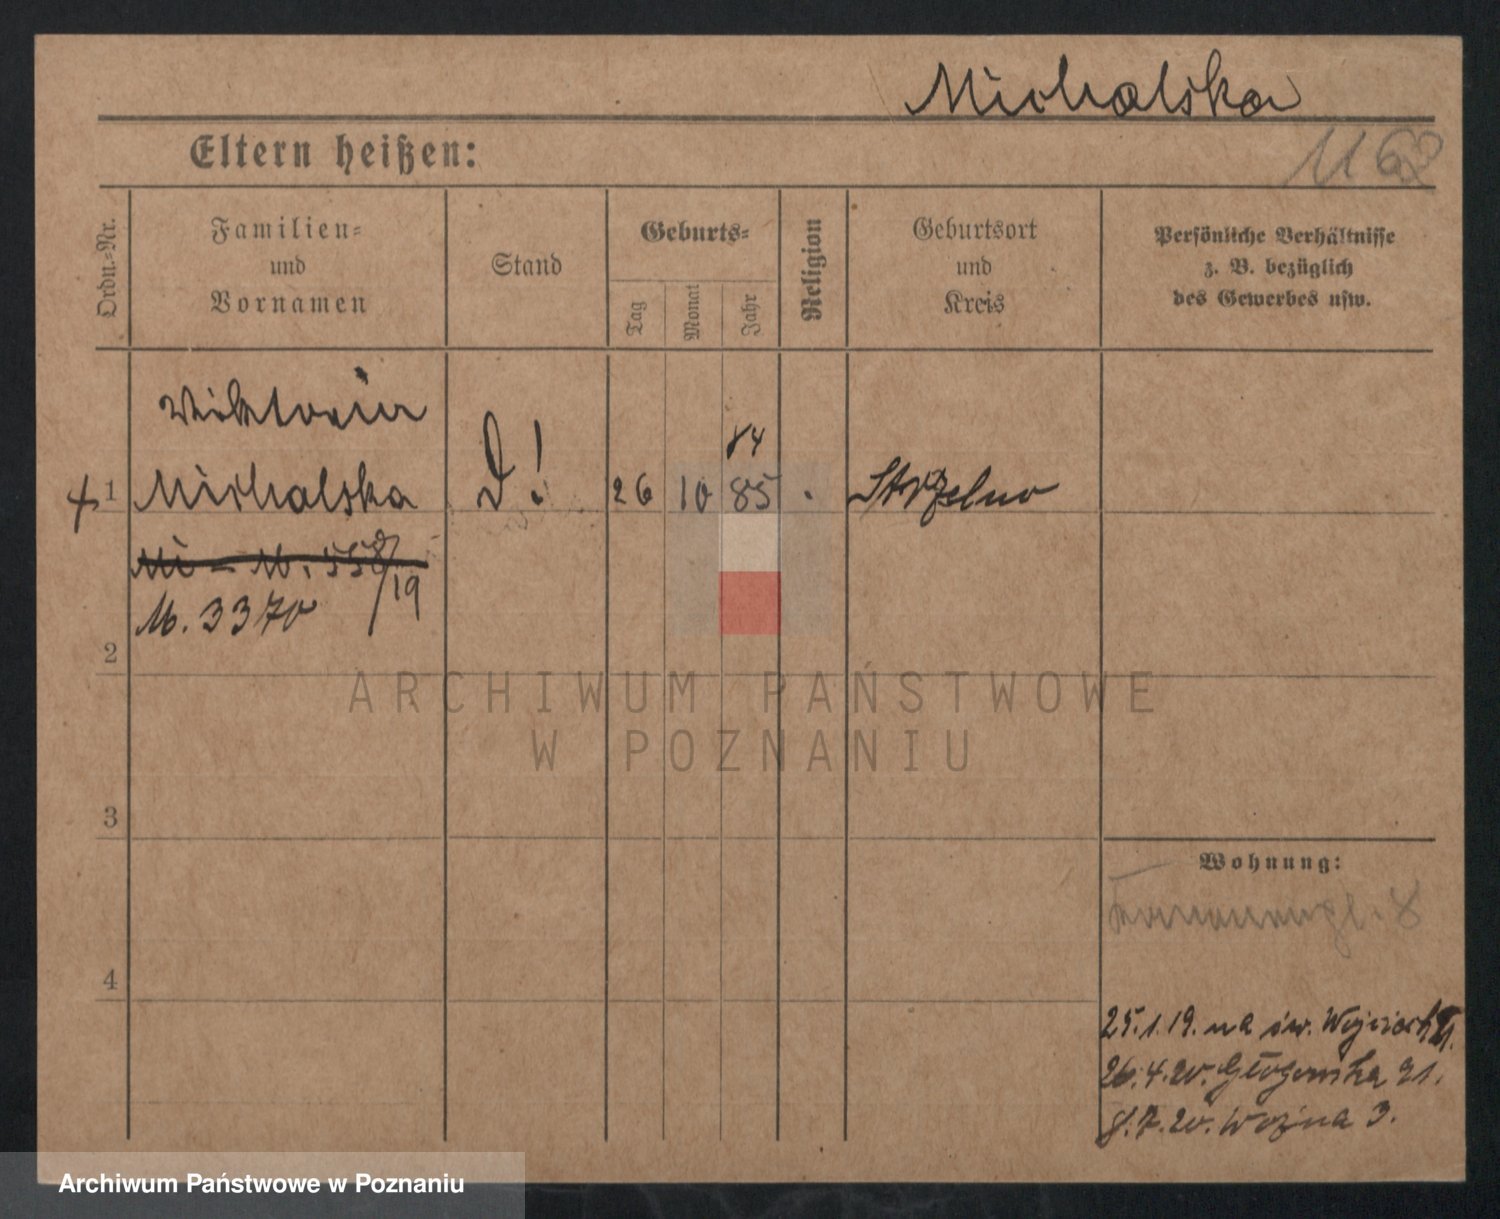 Michalska
1162
Eltern heißen:
Ordn.-Nr.
Familien-
und
Vornamen
Stand
Geburts-
Tag
Monat
Jahr
Religion
Geburtsort
und
Kreis
Persönliche Verhältnisse
z. B. bezüglich
des Gewerbes usw.
Viktoria
84
1 Michalska D! 26 10 85 . Strzelno
Mi - M. 558/19
M. 3370
2
ARCHIWUM PAŃSTWOWE
W POZNANIU
3
Wohnung:
4
25.1.19. na św. Wojciech
26.4.20. Głogowska 91.
8.7.20. Woźna 3.
Archiwum Państwowe w Poznaniu